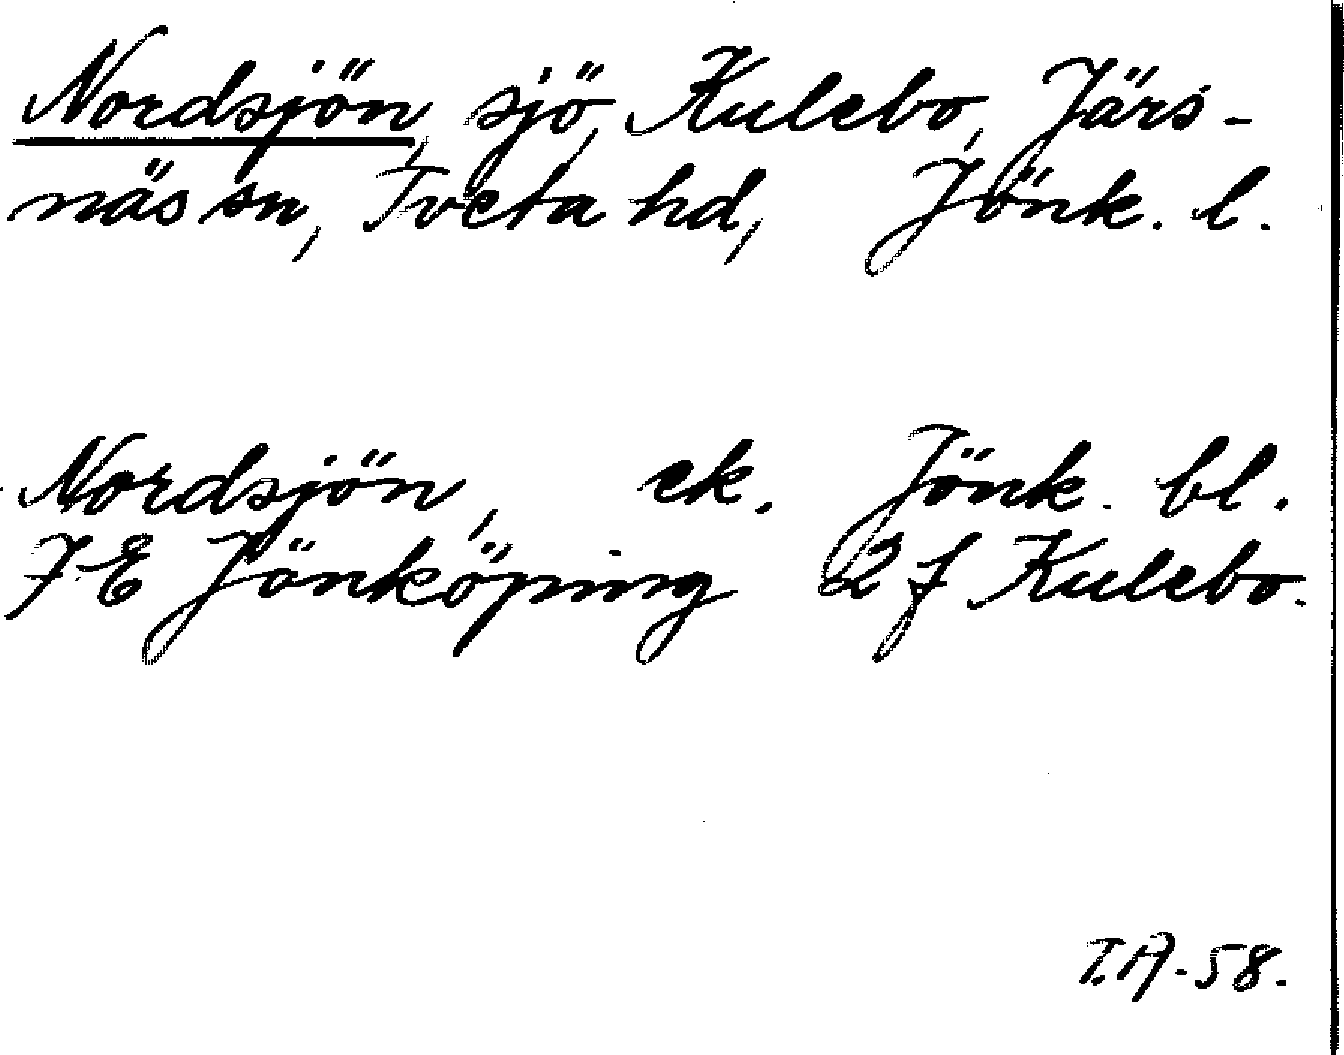 Nordsjön, sjö, Kulebo, Järs-
näs sn, Tveta hd, Jönk. l.
Nordsjön, ek. Jönk. bl.
7E Jönköping 2 f Kulebo.
T.A-58.